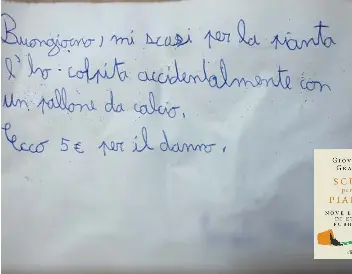 Buongiorno, mi scusi per la pianta
l'ho colpita accidentalmente con
un pallone da calcio.
Ecco 5€ per il danno.
GIOV
GRA
SCU
per
PIA
NOVE L
DI E
PURG